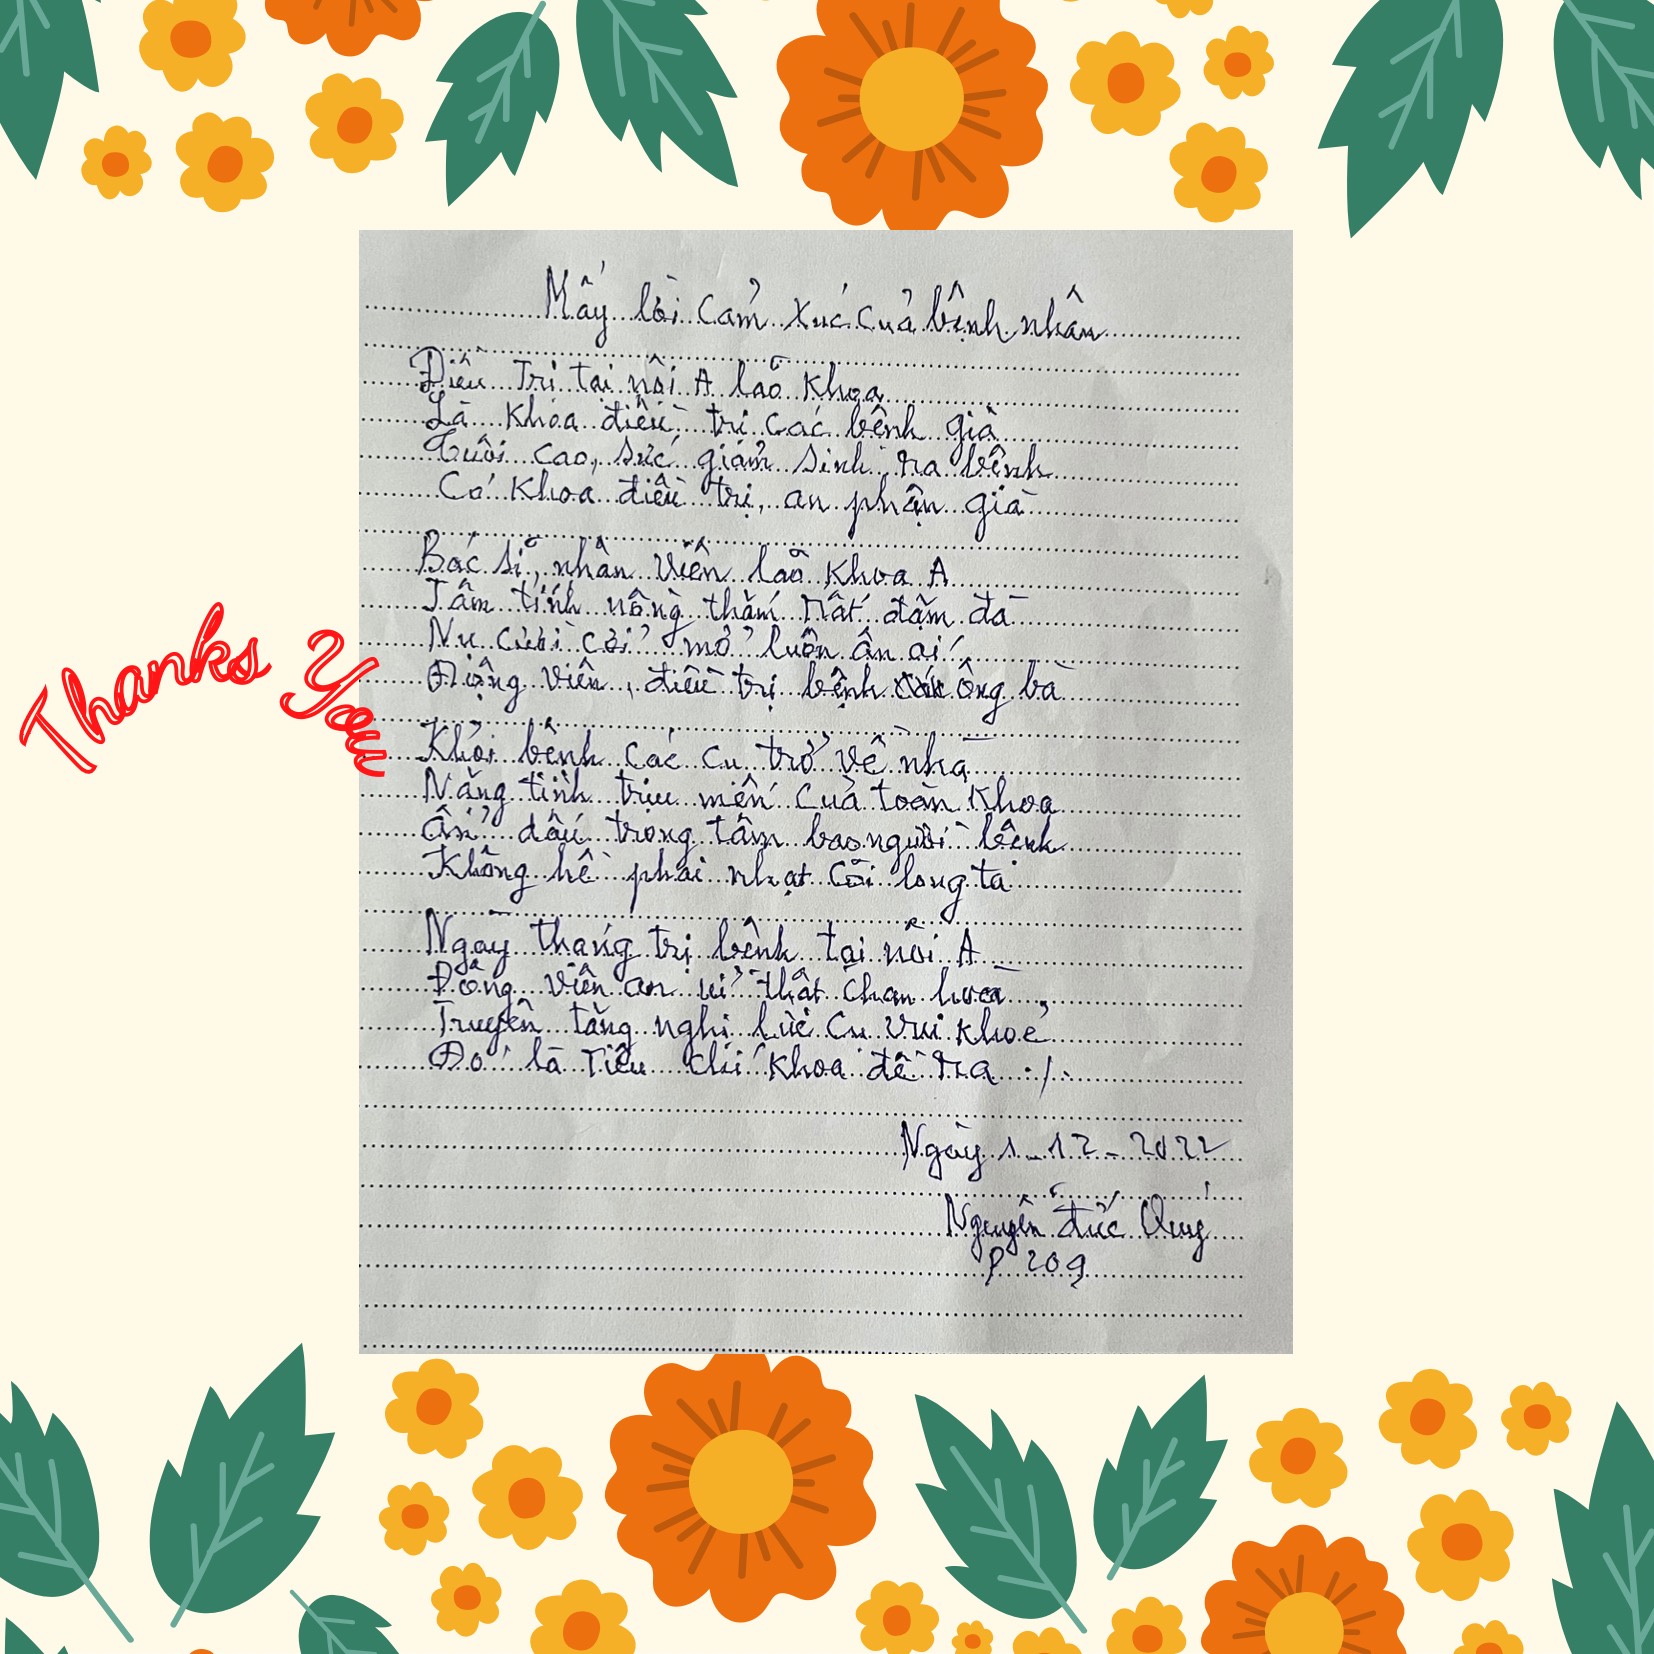 Mấy lời cảm xúc của bệnh nhân
Điều Trị tại nội A lão khoa
Là khoa điều trị các bệnh già
Tuổi cao, sức giảm sinh ra bệnh
Có khoa điều trị, an phận già
Bác sĩ, nhân viên lão khoa A
Tâm tính nồng thắm rất đậm đà
Nụ cười cởi mở luôn ân ái
Động viên, điều trị bệnh ông bà
Khỏi bệnh các cụ trở về nhà
Nặng tình trịu mến của toàn khoa
Ẩn dấu trong tâm bao người bệnh
Không hề phai nhạt cõi long ta
Ngày tháng trị bệnh tại nội A
Động viên an ủi thật chan hoà
Truyền tăng nghị lực cụ vui khoẻ
Đó là Tiêu chí khoa đề ra ./.
Ngày 1-12-2022
Nguyễn đức Quý
P 209
Thanks You